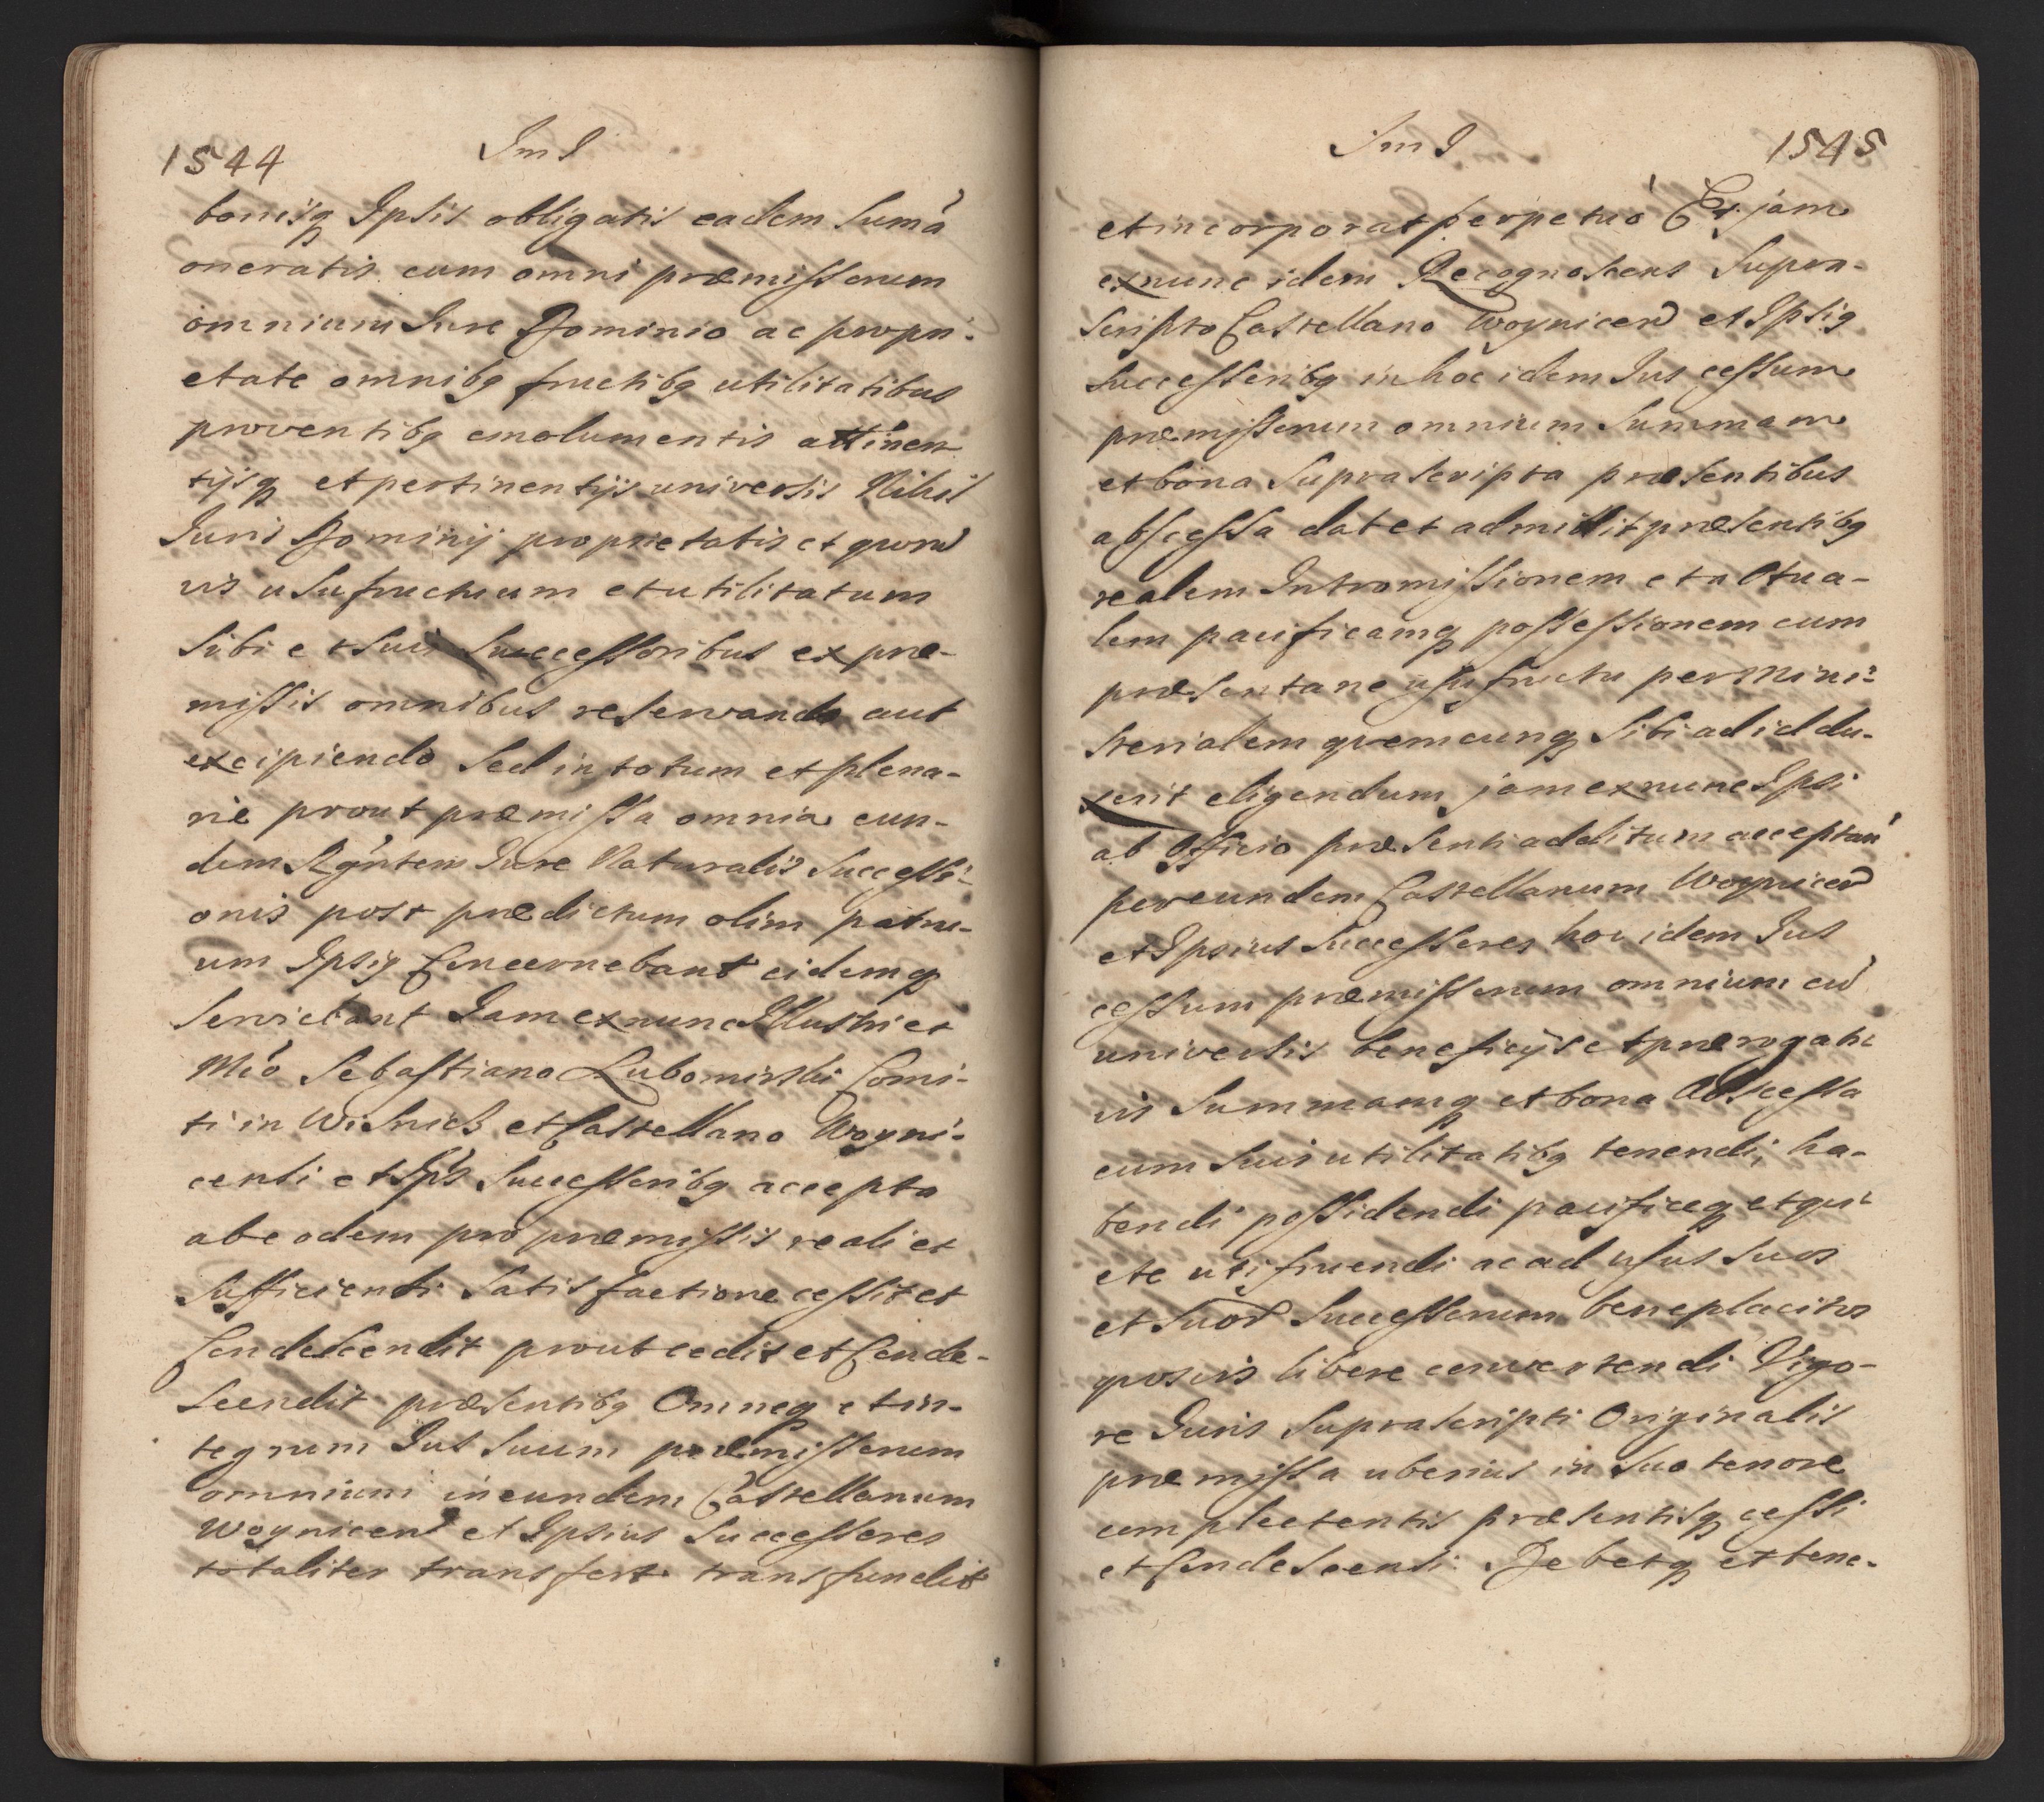 1544
Im I
bonisq Ipsis obligatis eadem Suma
oneratis cum omni præmissorum
omnium Jure Dominio ac propri-
etate omnibq fructibq utilitatibus
proventibq emolumentis attinen
tijsq et pertinentijs universis Nihil
Juris Dominij proprietatis et quor
vis usufructuum et utilitatum
Sibi et Suis Successoribus ex præ-
missis omnibus reservando aut
excipiendo Sed in totum et plena-
rie prout præmissa omnia eun-
dem Rgntem Jure Naturalis Successi-
onis post prædictum olim patru-
um Ipsiq Concernebant eidemq
Serviebant Jam exnunc Illustri et
Mco Sebastiano Lubomirski Comi-
ti in Wisnicz et Castellano Woyni-
censi et Ips Successoribq accepta
ab eodem pro præmissis reali et
Sufficienti Satisfactione cessit et
Condescendit prout cedit et Conde-
scendit præsentibq Omneq et in-
tegrum Jus Suum præmissorum
omnium in eundem Castellanum
Woynicen et Ipsius Successores
totaliter transfert transfundit
Im I
1545
et incorporat perpetuo Et jam
exnunc idem Recognoscens Supra-
scripto Castellano Woynicen et Ipsiq
Successoribq in hoc idem Jus cessum
præmissorum omnium Summam
et bona Suprascripta præsentibus
abscessa dat et admittit præsentibq
realem Intromissionem et actua-
lem pacificamq possessionem cum
præsentane usufructu per Mini-
sterialem quemcunq Sibi ad id du-
xerit eligendum jam exnunc Ipsi
ab Officio præsenti additum acceptan
per eundem Castellanum Woynicen
et Ipsius Successores hoc idem Jus
cessum præmissorum omnium cu
universis beneficijs et prærogati
vis Summamq et bona Abscessa
cum Suis utilitatibq tenendi, ha-
bendi possidendi pacificeq et qui
ete utifruendi ac ad usus Suos
et Suor Successorum beneplacitos
quosvis libere convertendi Vigo-
re Juris Suprascripti Originalis
præmissa uberius in Suo tenore
complectentis præsentisq cessi
et Condescensi Debetq et tene-